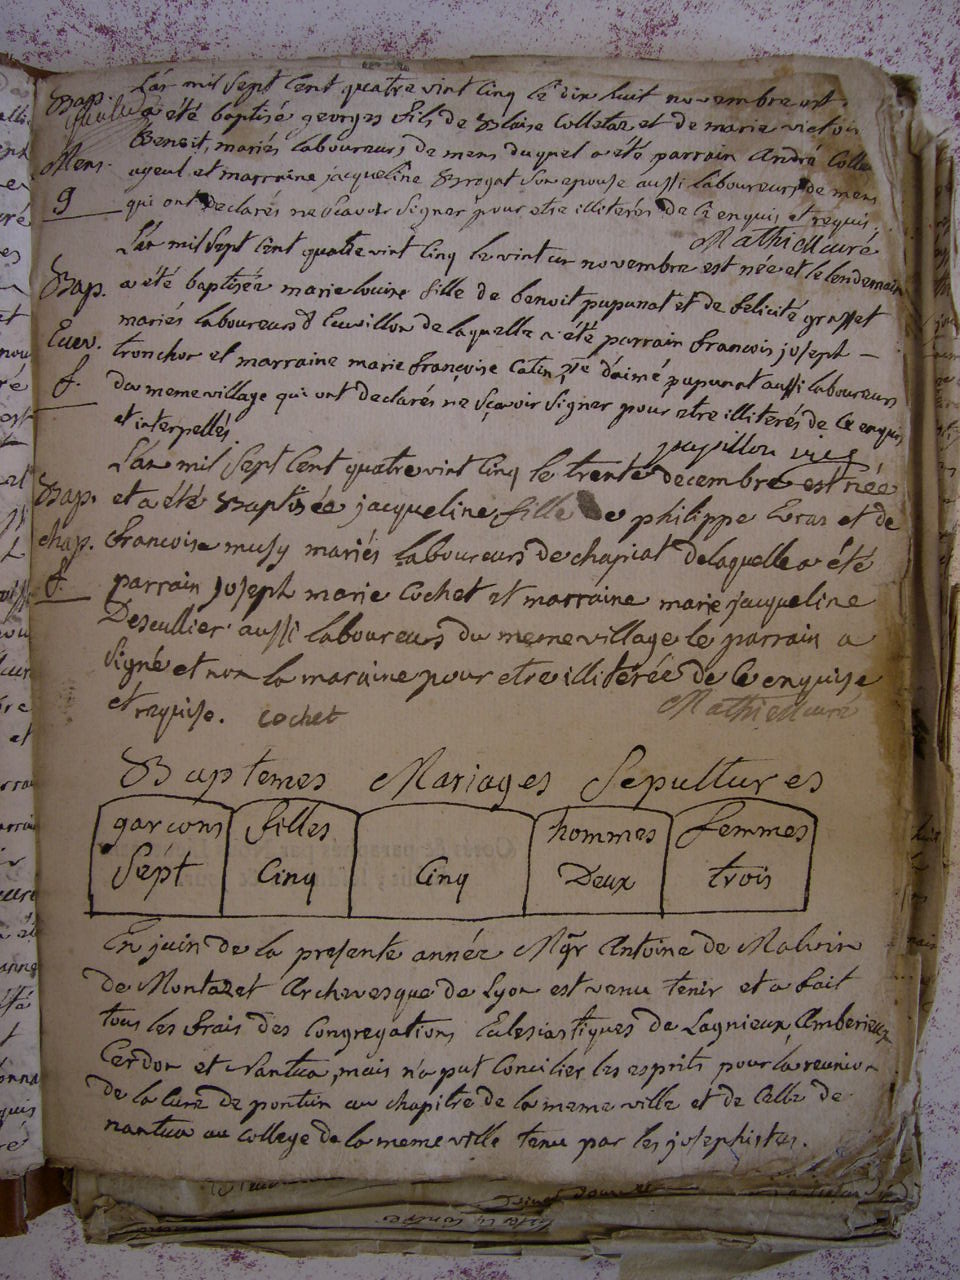 Bap. L'an mil sept cent quatre vint cinq le dix huit novembre est
a été baptisé georges fils de Blaise Colletaz et de marie victoir
Benoit, mariés laboureurs de mens duquel a été parrain André Colle
Mens. ayeul et marraine jacqueline Brogat son epouse aussi laboureurs de mens
g qui ont declarés ne scavoir signer pour etre illiterés de ce enquis et requis
Mathieu curé
L'an mil sept cent quatre vint cinq le vint un novembre est née et le lendemain
Bap. a été baptisée marie louise fille de benoit pupunat et de felicité grasset
mariés laboureurs d' Euvillon de laquelle a été parrain francois joseph —
Euev. tronchon et marraine marie françoise Catin, f.e d'aimé pupunat aussi laboureurs
f. du meme village qui ont declarés ne sçavoir signer pour etre illiterés de ce enquis
et interpellés. papillon vic
L'an mil sept cent quatre vint cinq le trente decembre est née
Bap. et a été Baptisée jacqueline fille de philippe Evras et de
chap. francoise musy mariés laboureurs de chapiat de laquelle a été
f. parrain joseph marie Cochet et marraine marie jacqueline
Descullier aussi laboureurs du meme village le parrain a
signé et non la maraine pour etre illiterée de ce enquise
et requise. Cochet Mathieu curé
Baptemes Mariages Sepultures
garcons filles hommes femmes
Sept Cinq Cinq Deux trois
En juin de la presente année Mgr Antoine de Malvin
de Montazet Archevesque de Lyon est venu tenir et a fait
tous les frais des Congregations Eclesiastiques de Lagnieux, Amberieux
Cerdon et Nantua, mais n'a put Concilier les esprits pour la reunion
de la cure de pontin au chapitre de la meme ville et de Celle de
nantua au college de la meme ville tenu par les josephistes.